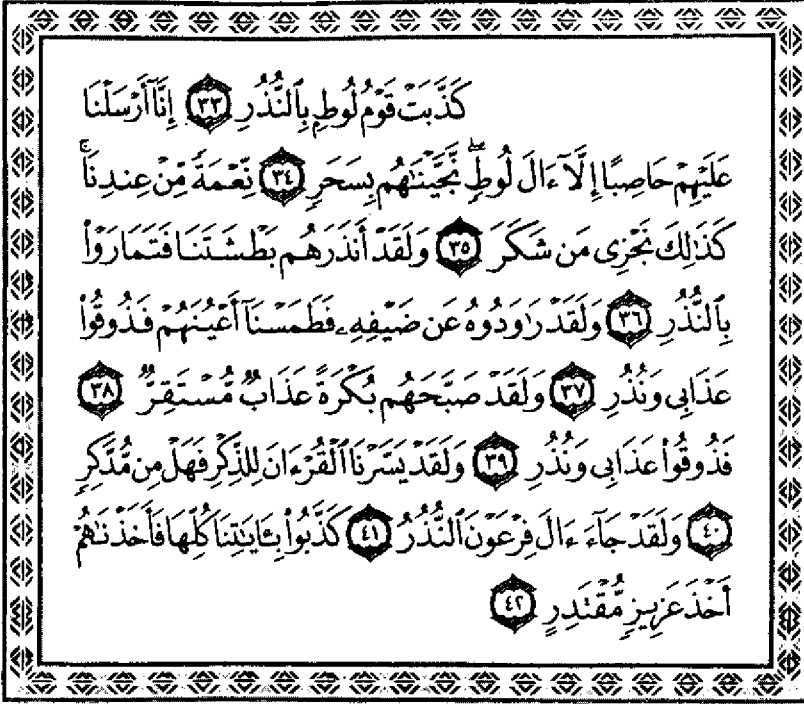 كَذَّبَتْ قَوْمُ لُوطٍ بِٱلنُّذُرِ ٣٣ إِنَّآ أَرْسَلْنَا
عَلَيْهِمْ حَاصِبًا إِلَّآ ءَالَ لُوطٍۖ نَّجَّيْنَٰهُم بِسَحَرٍ ٣٤ نِّعْمَةً مِّنْ عِندِنَاۚ
كَذَٰلِكَ نَجْزِى مَن شَكَرَ ٣٥ وَلَقَدْ أَنذَرَهُم بَطْشَتَنَا فَتَمَارَوْا۟
بِٱلنُّذُرِ ٣٦ وَلَقَدْ رَٰوَدُوهُ عَن ضَيْفِهِۦ فَطَمَسْنَآ أَعْيُنَهُمْ فَذُوقُوا۟
عَذَابِى وَنُذُرِ ٣٧ وَلَقَدْ صَبَّحَهُم بُكْرَةً عَذَابٌ مُّسْتَقِرٌّ ٣٨
فَذُوقُوا۟ عَذَابِى وَنُذُرِ ٣٩ وَلَقَدْ يَسَّرْنَا ٱلْقُرْءَانَ لِلذِّكْرِ فَهَلْ مِن مُّدَّكِرٍ
٤٠ وَلَقَدْ جَآءَ ءَالَ فِرْعَوْنَ ٱلنُّذُرُ ٤١ كَذَّبُوا۟ بِـَٔايَٰتِنَا كُلِّهَا فَأَخَذْنَٰهُمْ
أَخْذَ عَزِيزٍ مُّقْتَدِرٍ ٤٢